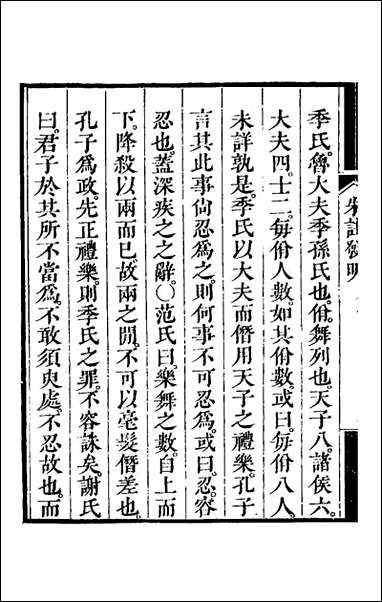 朱註發明
季氏魯大夫季孫氏也佾舞列也天子八諸侯六
大夫四士二每佾人數如其佾數或曰每佾八人
未詳孰是季氏以大夫而僭用天子之禮樂孔子
言其此事尙忍爲之則何事不可忍爲或曰忍容
忍也蓋深疾之之辭○范氏曰樂舞之數自上而
下降殺以兩而已故兩之閒不可以毫髮僭差也
孔子爲政先正禮樂則季氏之罪不容誅矣謝氏
曰君子於其所不當爲不敢須臾處不忍故也而